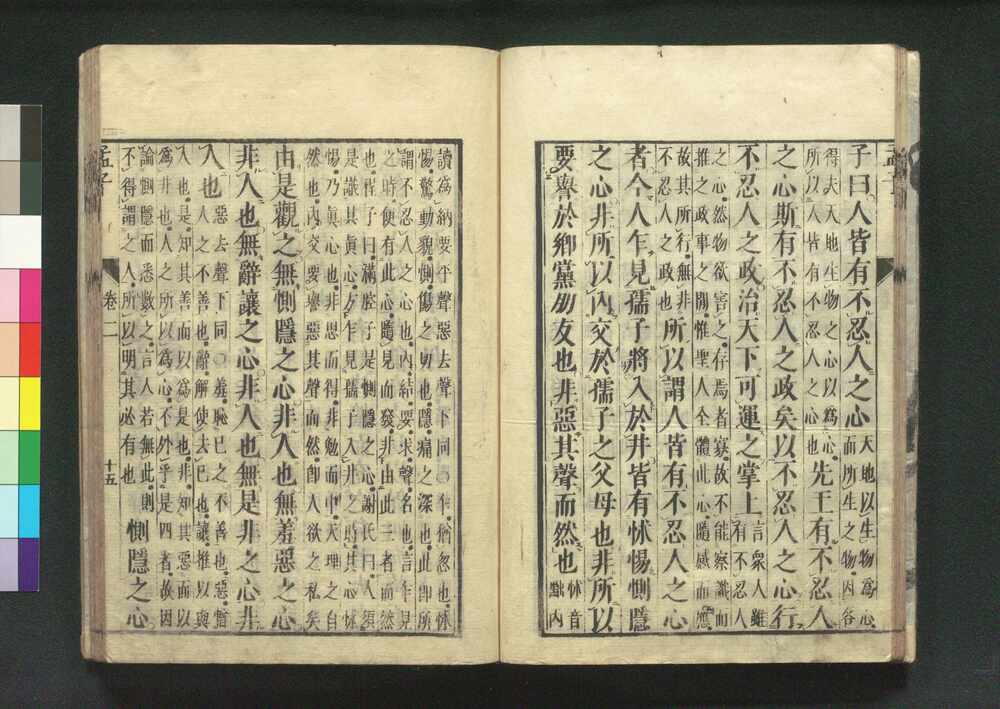 孟子
子曰人皆有不忍人之心天地以生物爲心
而所生之物因各
得夫天地生物之心以爲心
所以人皆有不忍人之心也先王有不忍人
之心斯有不忍人之政矣以不忍人之心行
不忍人之政治天下可運之掌上言衆人雖
有不忍人
之心然物欲害之存焉者寡故不能察識而
推之政事之間惟聖人全體此心隨感而應
故其所行無非
不忍人之政也所以謂人皆有不忍人之心
者今人乍見孺子將入於井皆有怵惕惻隱
之心非所以内交於孺子之父母也非所以
要譽於鄉黨朋友也非惡其聲而然也怵音
黜内
讀爲納要平聲惡去聲下同○乍猶忽也怵
惕驚動貌惻傷之切也隱痛之深也此即所
謂不忍人之心也内結要求聲名也言乍見
之時便有此心隨見而發非由此三者而然
也程子曰滿腔子是惻隱之心謝氏曰人須
是識其眞心方乍見孺子入井之時其心怵
惕乃眞心也非思而得非勉而中天理之自
然也内交要譽惡其聲而然即人欲之私矣
由是觀之無惻隱之心非人也無羞惡之心
非人也無辭讓之心非人也無是非之心非
人也惡去聲下同○羞恥己之不善也惡憎
人之不善也辭解使去己也讓推以與
人也是知其善而以爲是也非知其惡而以
爲非也人之所以爲心不外乎是四者故因
論惻隱而悉數之言人若無此則
不得謂之人所以明其必有也惻隱之心
孟子 卷二 十五